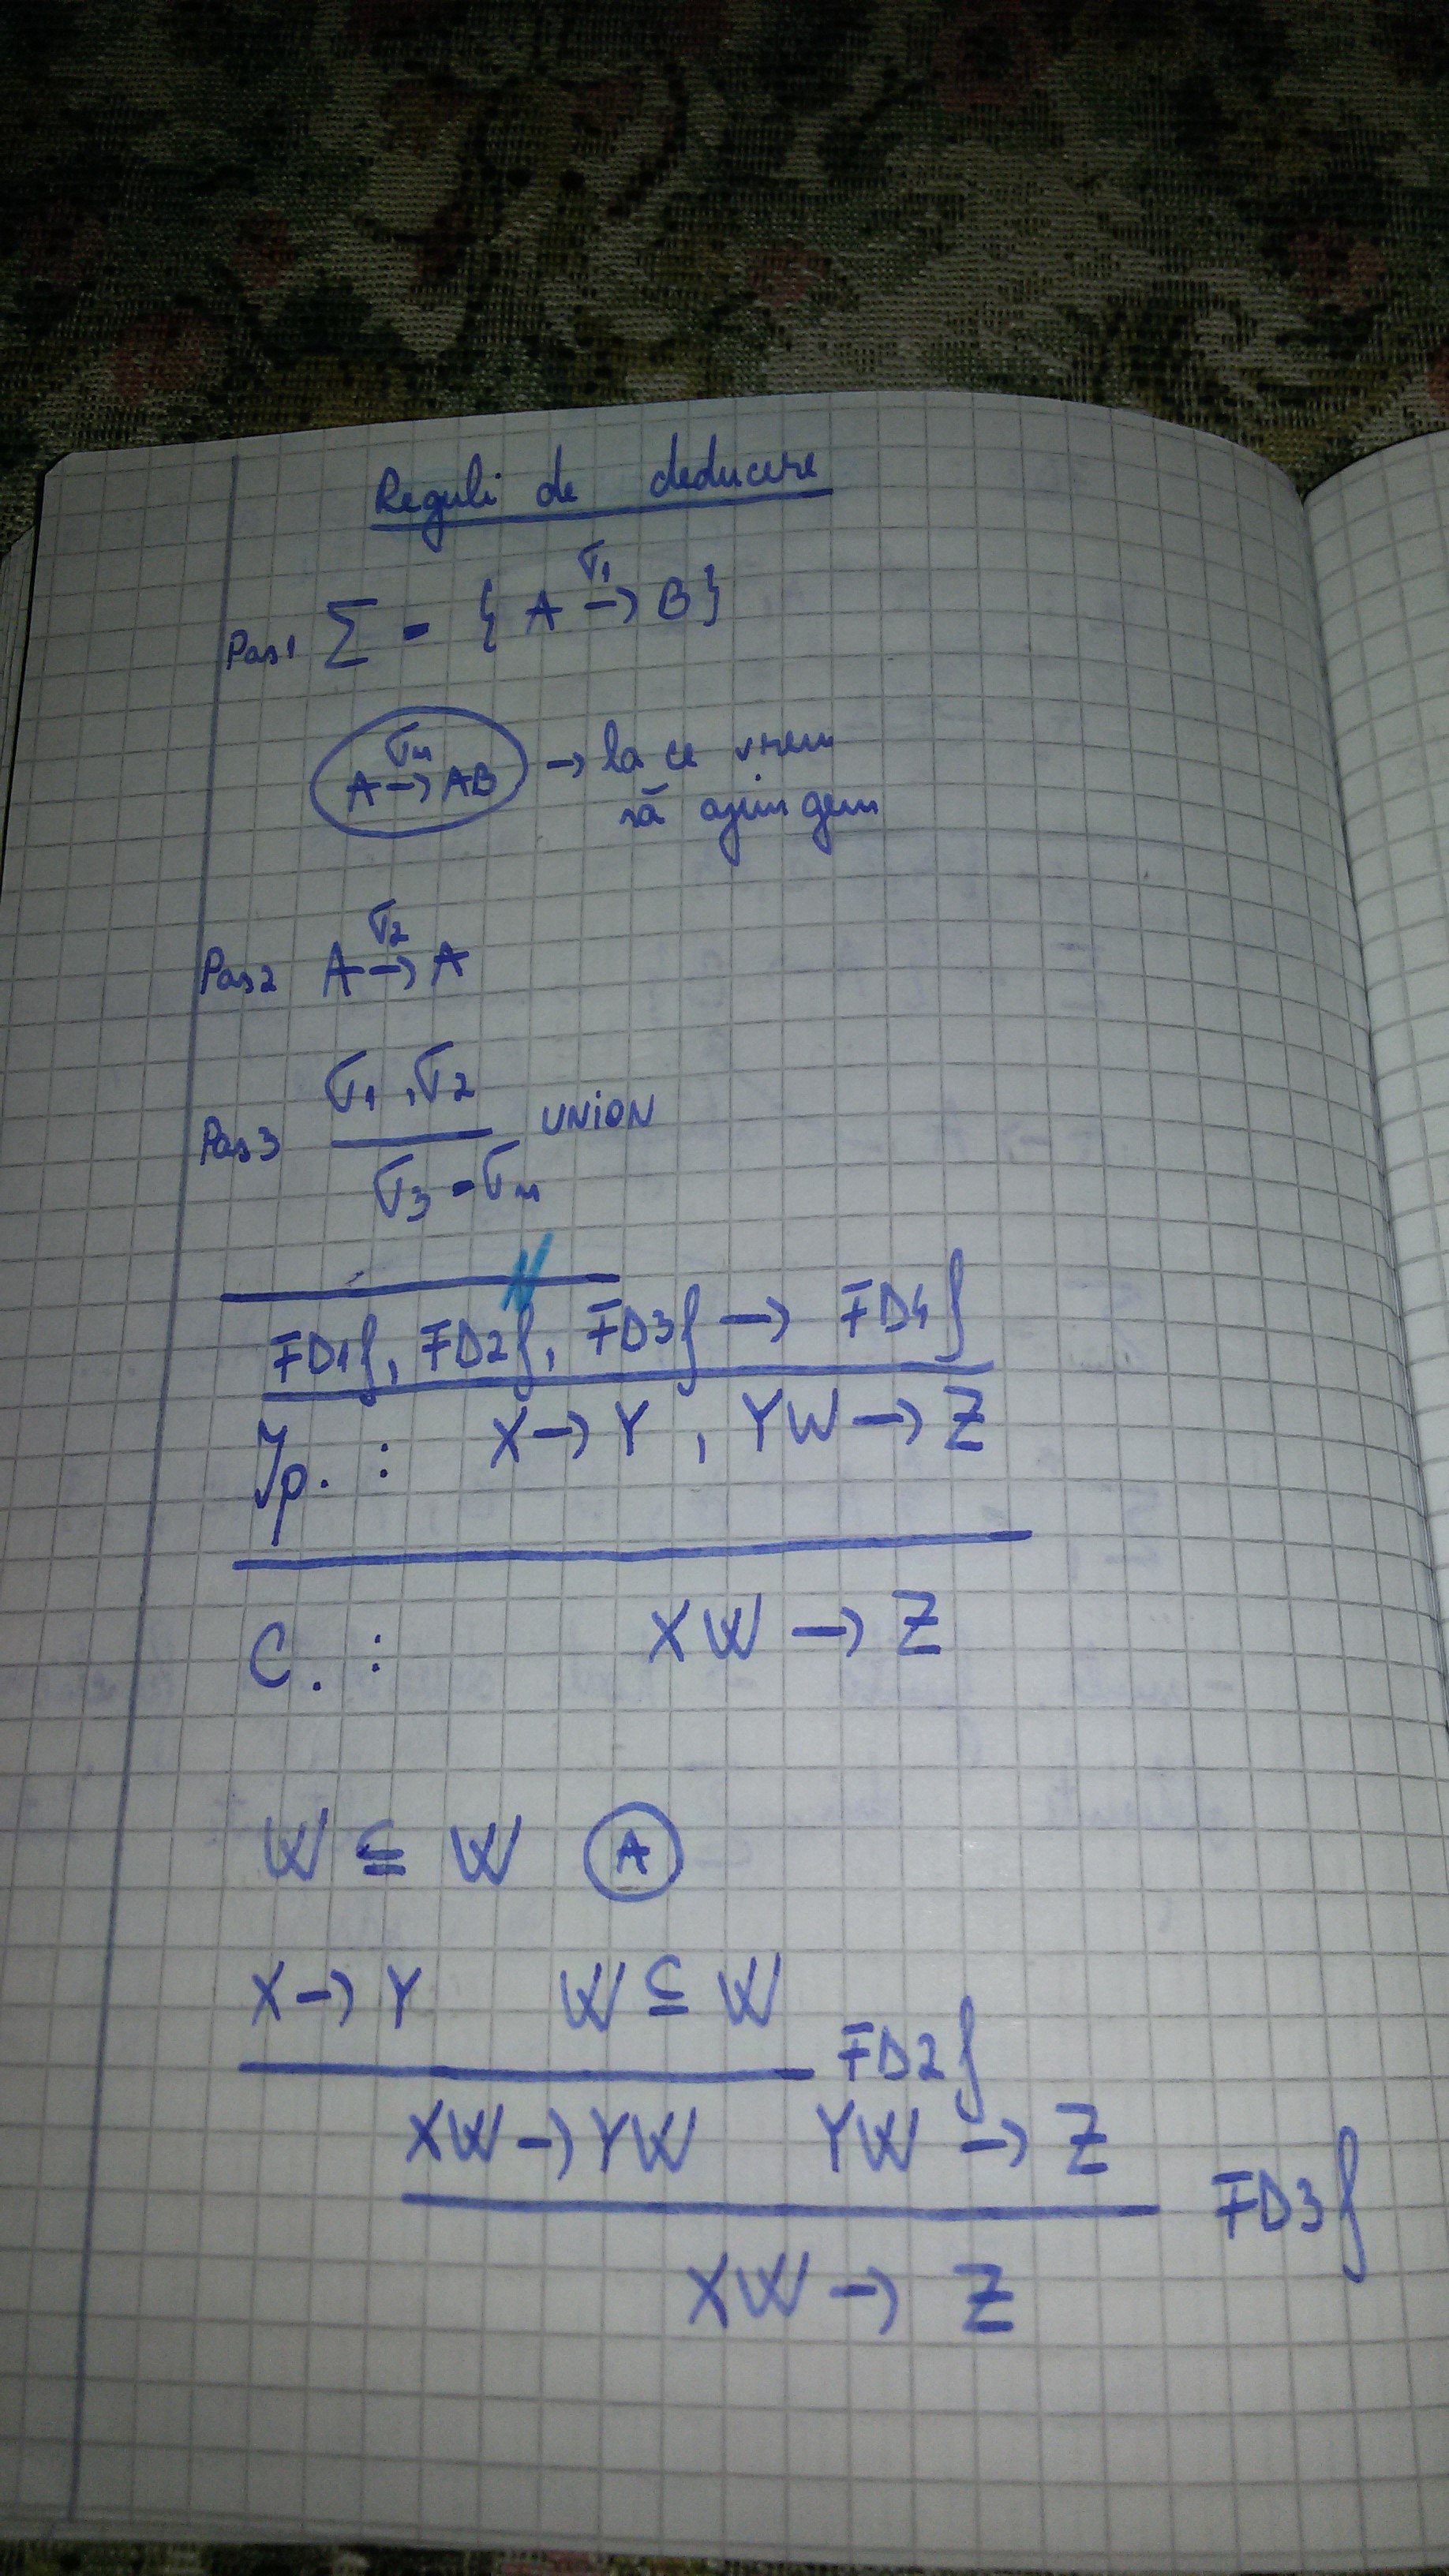 Reguli de deducere
Pas1 Σ = { A →σ₁ B }
A →σₙ AB → la ce vrem
să ajungem
Pas2 A →σ₂ A
Pas3 σ₁, σ₂
UNION
σ₃ = σₙ
FD1f, FD2f, FD3f → FD4f
Ip. : X → Y , YW → Z
C. : XW → Z
W ⊆ W A
X → Y W ⊆ W
FD2f
XW → YW YW → Z
FD3f
XW → Z